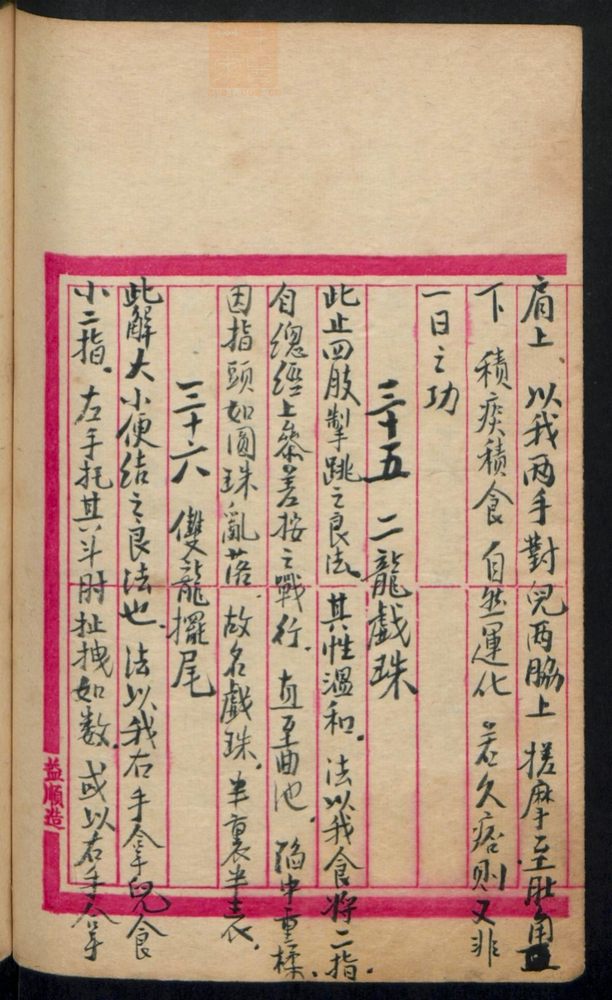 肩上、以我两手對兒两脇上搓摩至肚角直
下積痰積食自然運化若久痞則又非
一日之功
三十五 二龍戲珠
此止四肢掣跳之良法其性溫和法以我食將二指
自總經上參差按之戰行直至曲池陷中重揉
因指頭如圓珠亂落故名戲珠半裏半表
三十六 雙龍擺尾
此解大小便结之良法也法以我右手拿兒食
小二指左手托其斗肘扯拽如數或以右手拿
益順造